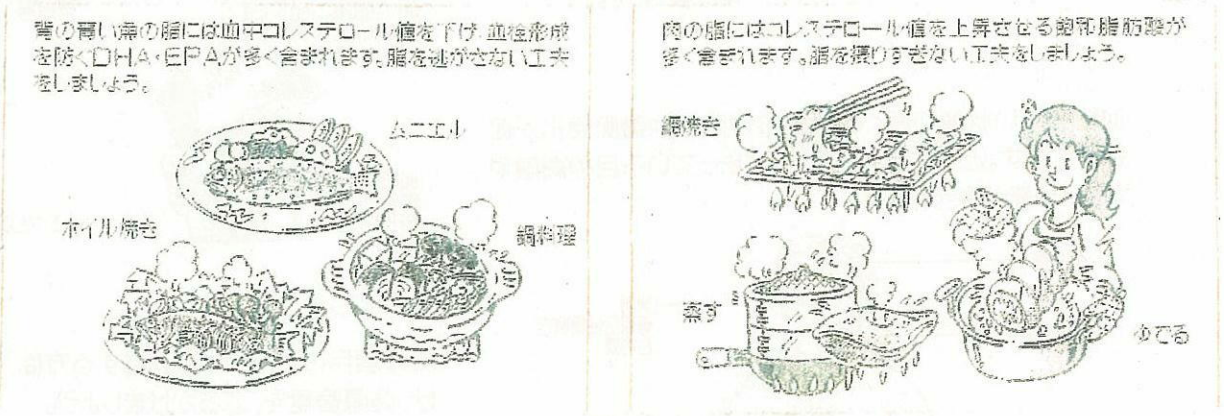 背の青い魚の脂には血中コレステロール値を下げ、血栓形成
を防ぐDHA・EPAが多く含まれます。脂を逃がさない工夫
をしましょう。
ムニエル
ホイル焼き
鍋料理
肉の脂にはコレステロール値を上昇させる飽和脂肪酸が
多く含まれます。脂を摂りすぎない工夫をしましょう。
網焼き
蒸す
ゆでる